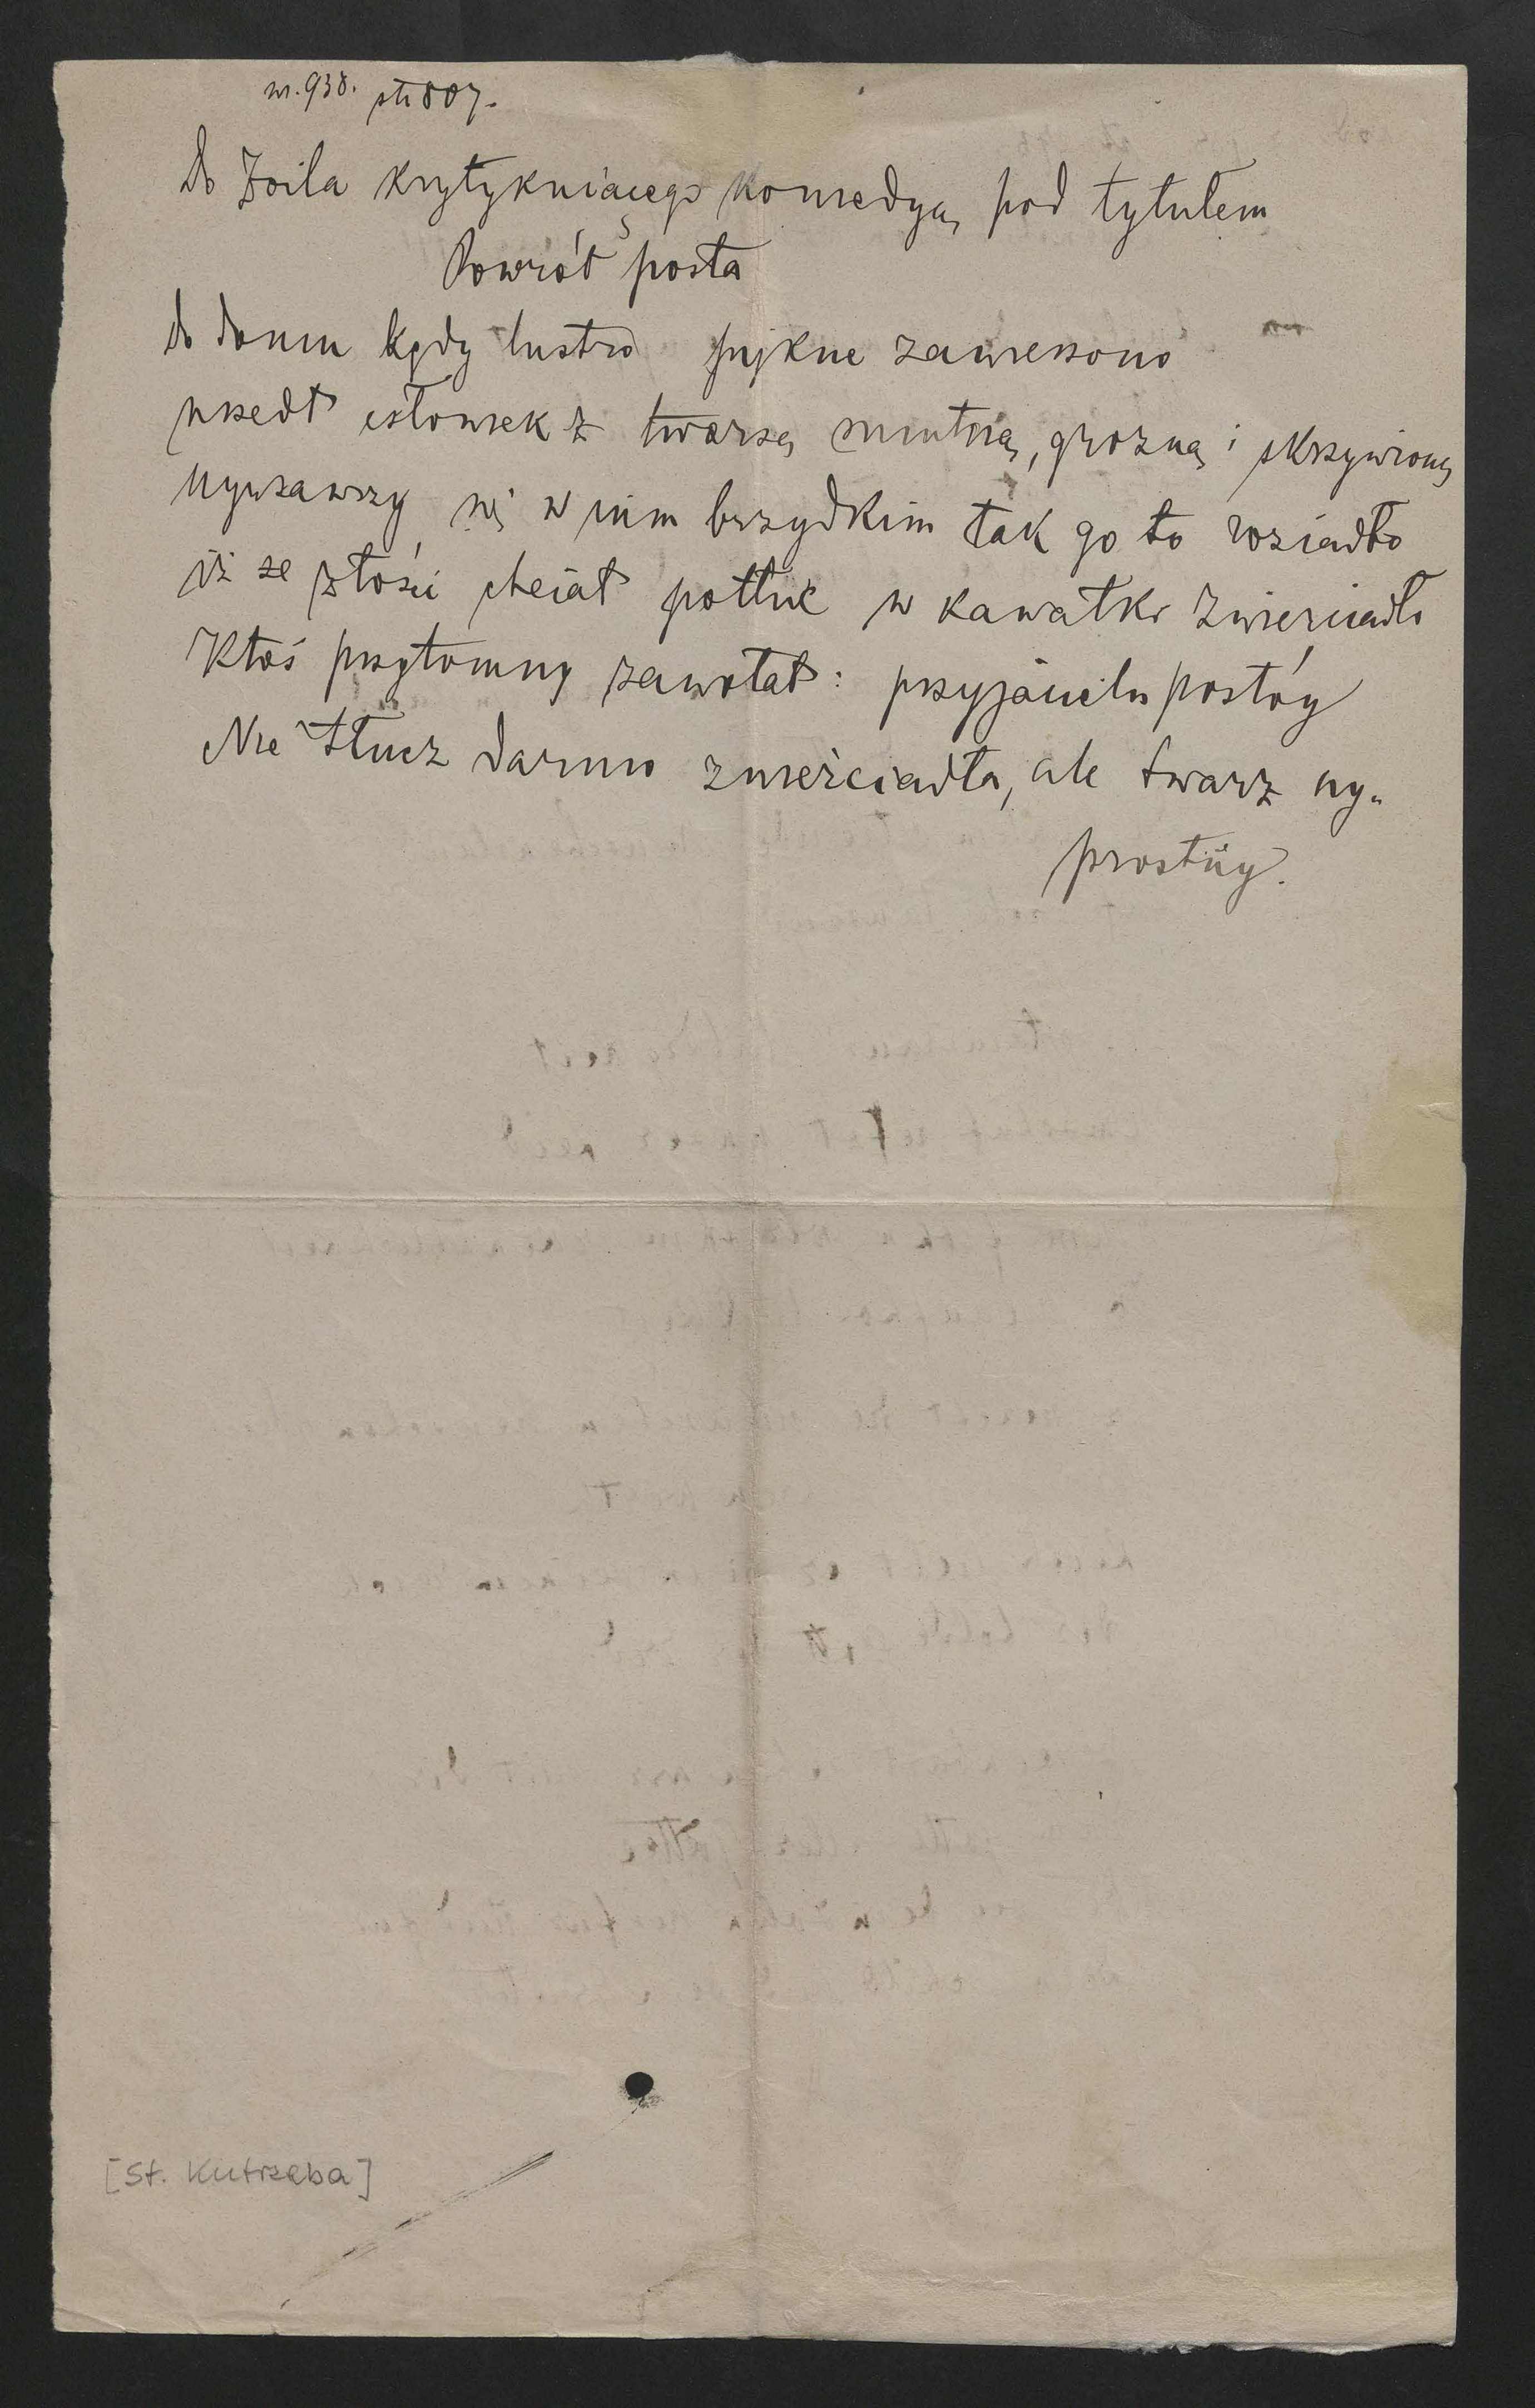 nr. 938. str 807.
Do Zoila krytykuiącego komedyą pod tytułem
Powrót posła
do domu kędy lustro piękne zawieszono
wszedł człowiek z twarzą smutną, grozną i skrzywioną
Uyrzawszy się w nim brzydkim tak go to rozjadło
iż ze złości chciał potłuc w kawałki zwierciadło
Ktoś przytomny zawołał: przyjacielu postóy
Nie tłucz darmo zwierciadła, ale twarz wy-
prostúy.
[St. Kutrzeba]